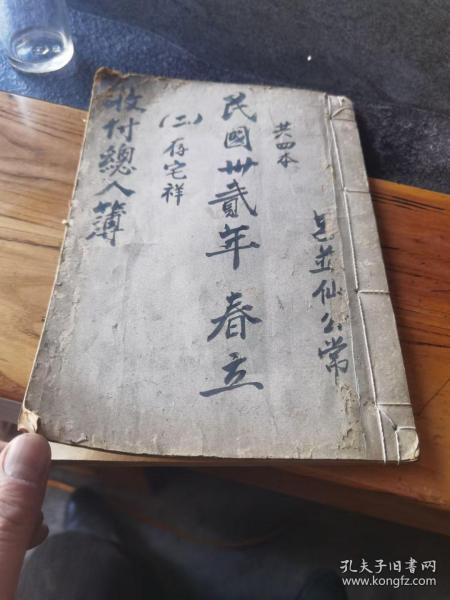 共四本
民國卅貳年 春立
(二)存宅祥
收付總入簿
並仙公常
孔夫子旧书网
www.kongfz.com